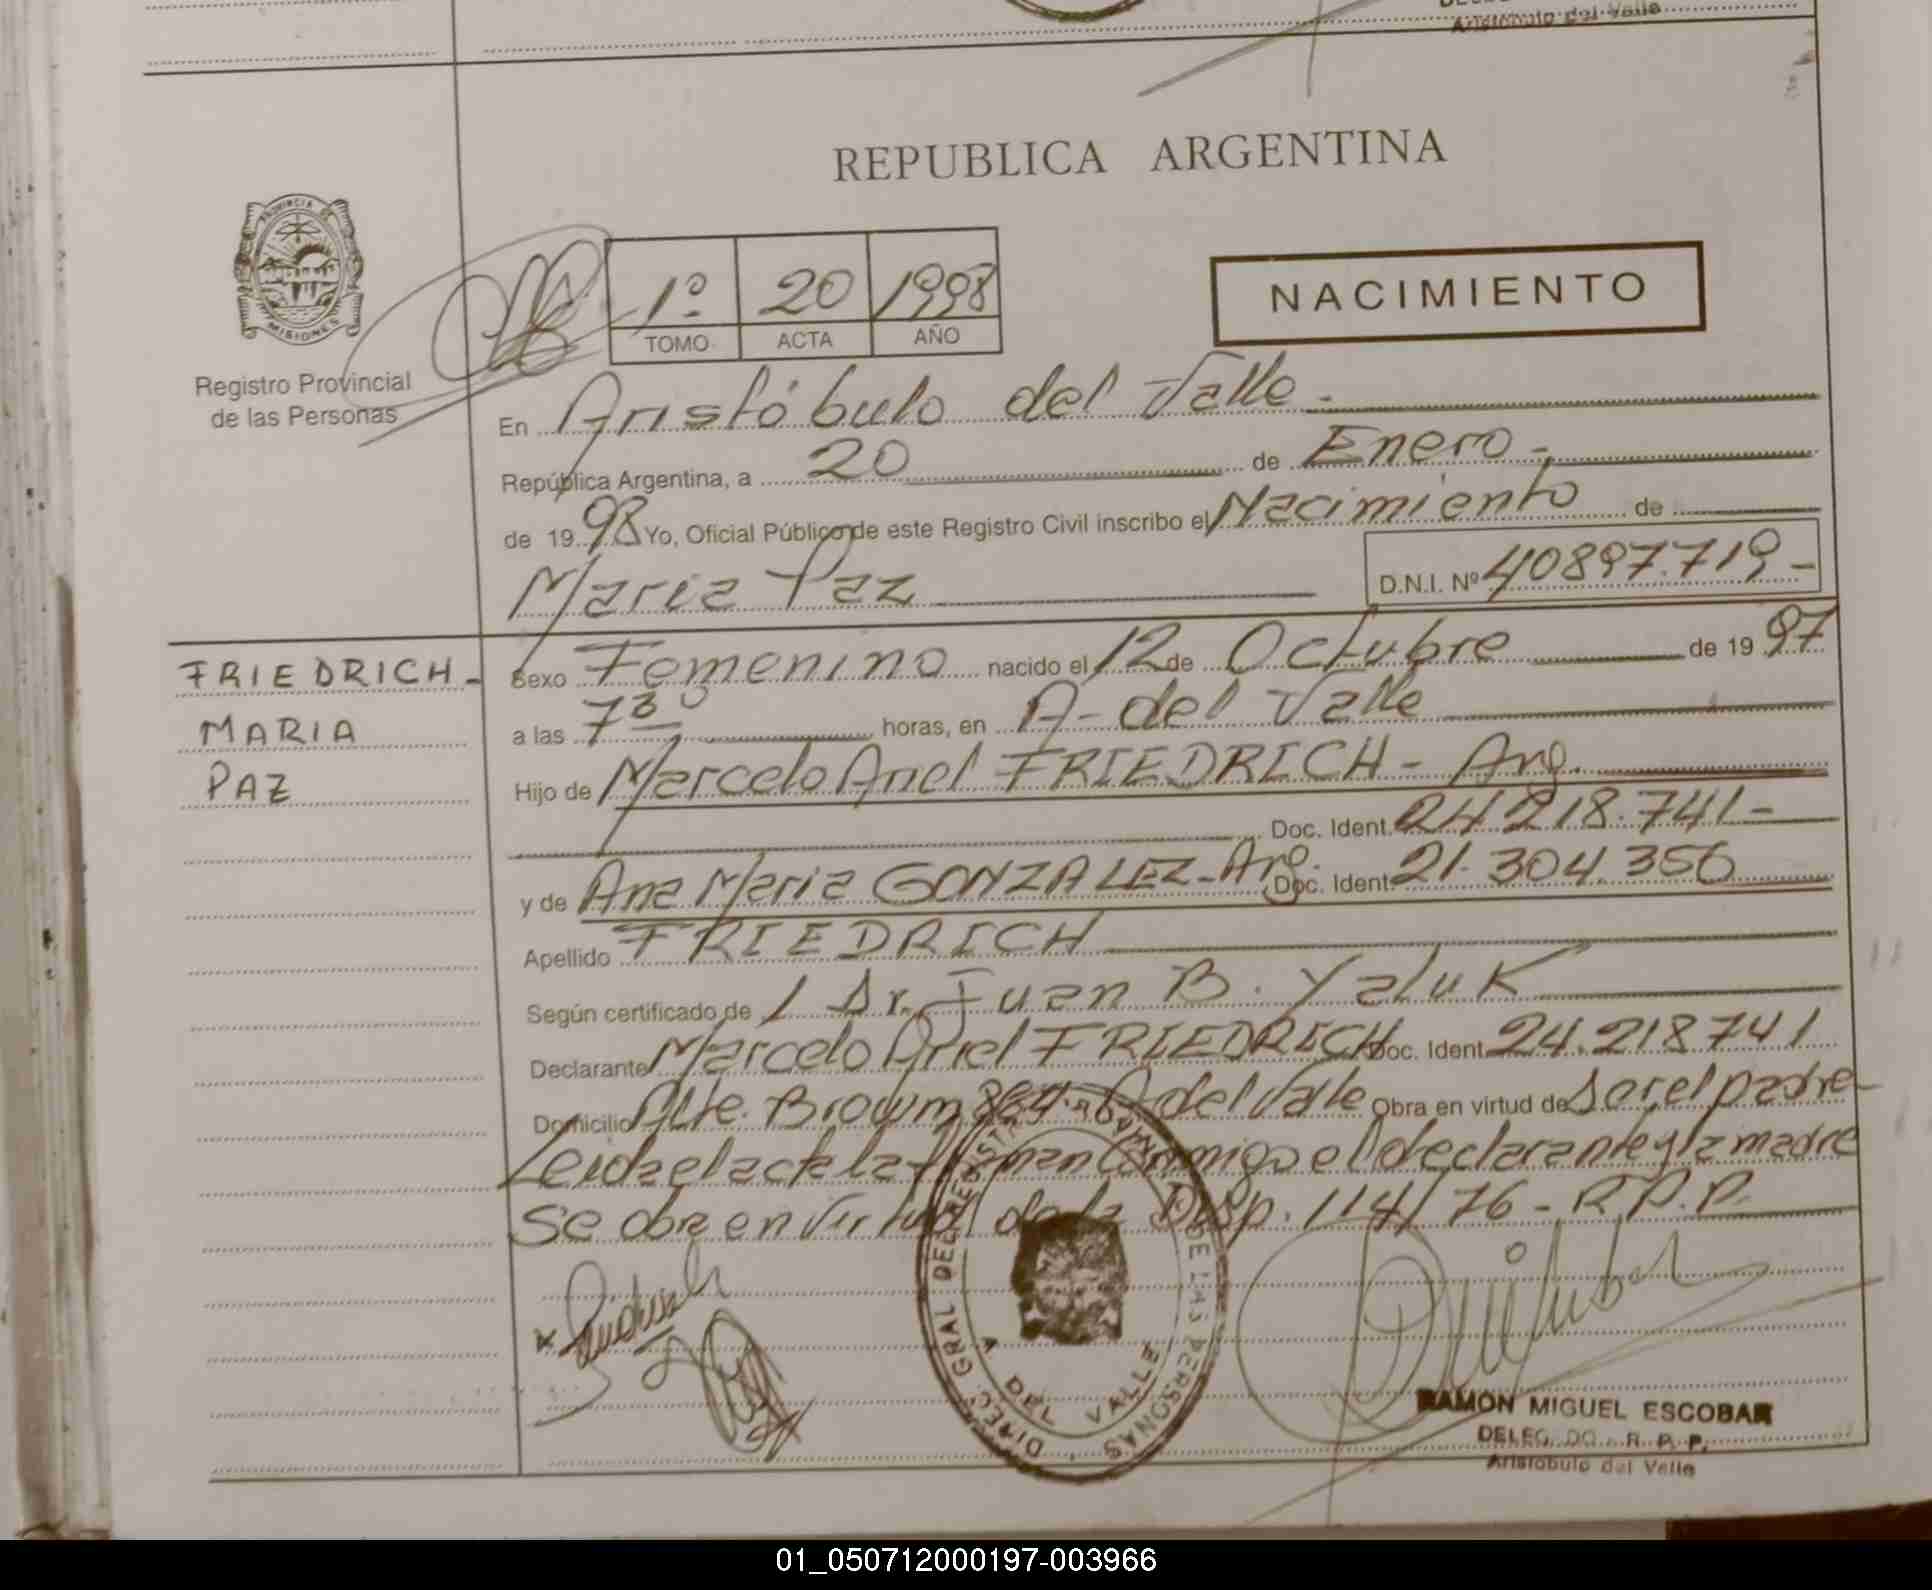 Aristobulo del Valle
REPUBLICA ARGENTINA
PROVINCIA DE
MISIONES
Registro Provincial
de las Personas
1º 20 1998
TOMO ACTA AÑO
NACIMIENTO
En Aristóbulo del Valle -
República Argentina, a 20 de Enero -
de 1998 Yo, Oficial Público de este Registro Civil inscribo el Nacimiento de
Maria Paz D.N.I. Nº 40897.719 -
FRIEDRICH -
MARIA
PAZ
Sexo Femenino nacido el 12 de Octubre de 1997
a las 7 30 horas, en A- del Valle
Hijo de Marcelo Ariel FRIEDRICH - Arg.
Doc. Ident. 24 218.741 -
y de Ana Maria GONZALEZ - Arg. Doc. Ident. 21.304.356
Apellido FRIEDRICH
Según certificado de / Dr. Juan B. Yaluk
Declarante Marcelo Ariel FRIEDRICH Doc. Ident. 24.218 741
Domicilio Alte. Browm 864 - A del Valle Obra en virtud de Ser el padre -
Leida el acta la firman conmigo el declarante y la madre
Se obra en virtud de la Disp. 114/76 - R.P.P.
DIREC. GRAL DEL REGISTRO PROVINC. DE LAS PERSONAS
A DEL VALLE
RAMON MIGUEL ESCOBAR
DELEG DO . R. P. P.
Aristobulo del Valle
01_050712000197-003966